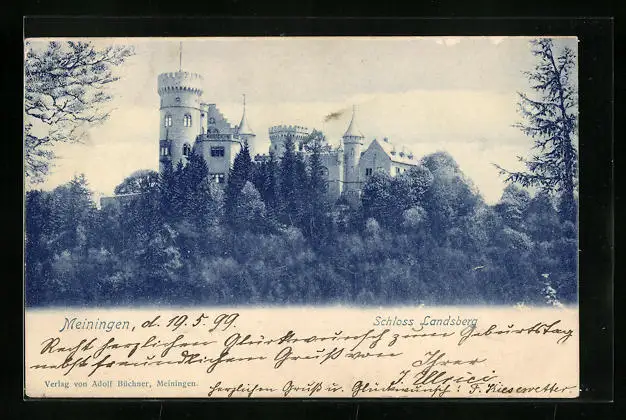 Meiningen, d. 19. 5. 99.
Schloss Landsberg
Recht herzlichen Glückwunsch zum Geburtstag
nebst freundlichem Gruss von Ihrer
Verlag von Adolf Büchner, Meiningen.
herzlichen Gruß u. Glückwunsch: F. Kiesewetter